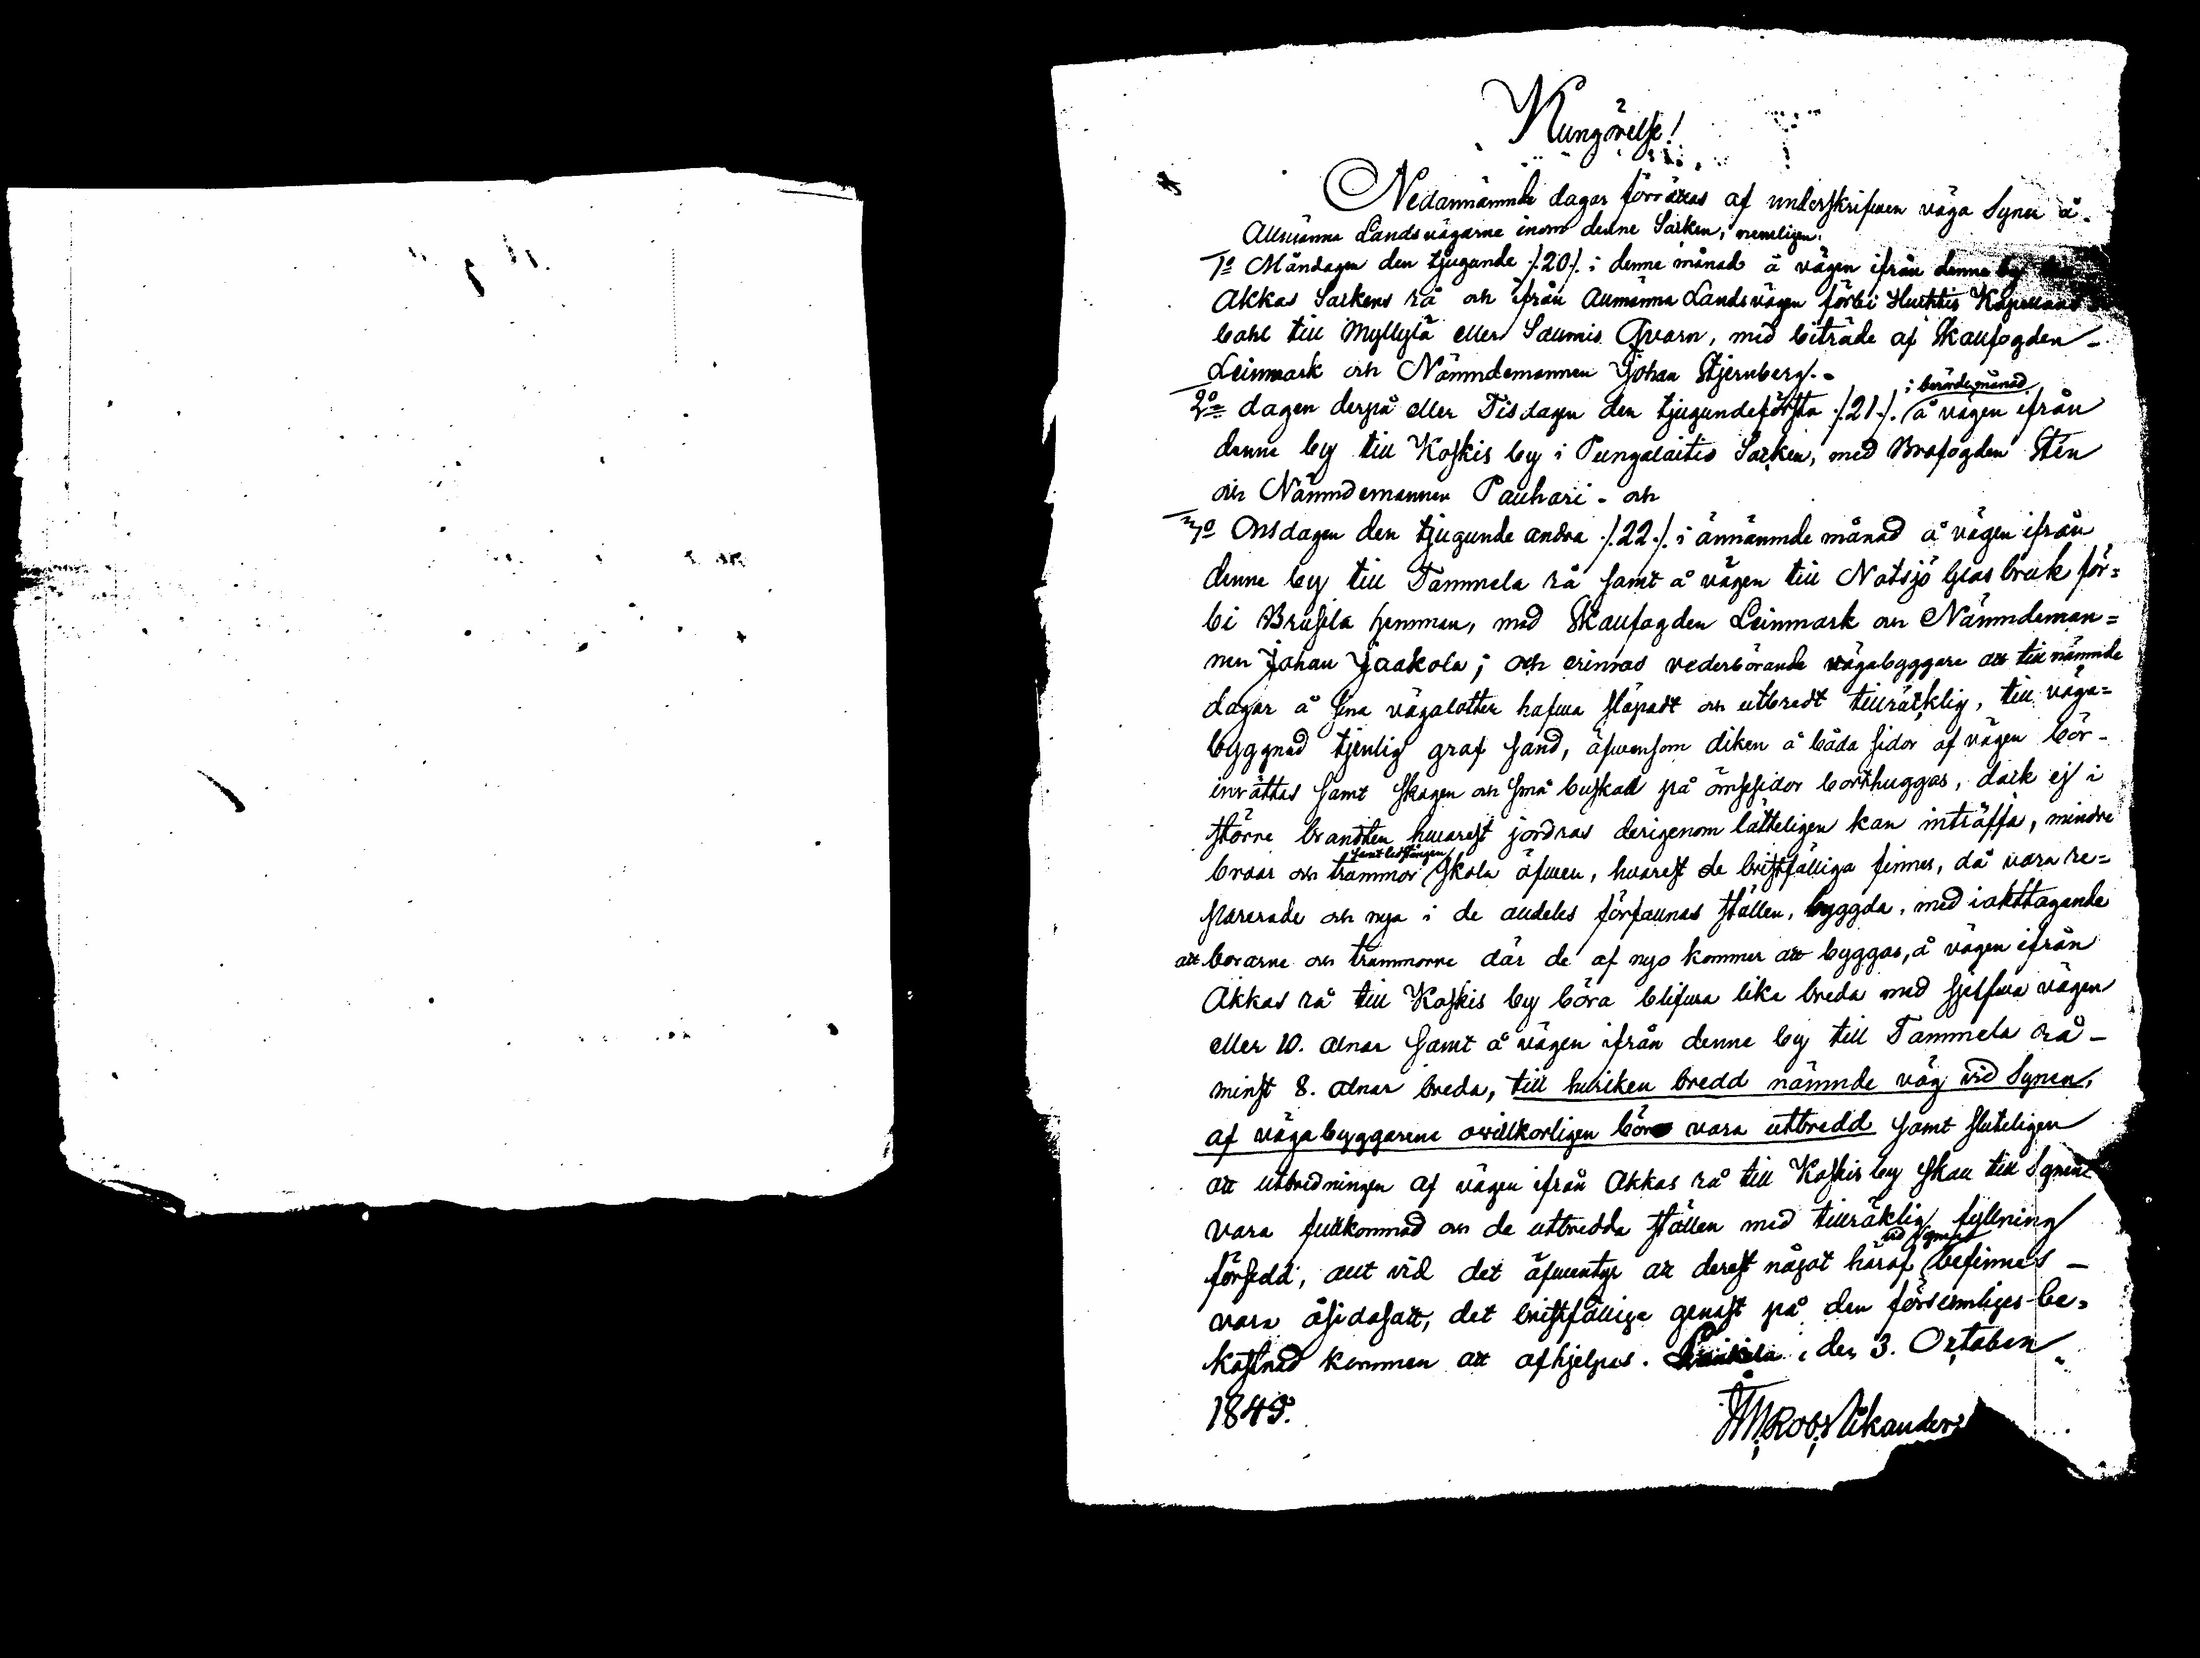 Kungörelse!
Nedannämnde dagar förrättas af underskrifwen väga Syner å
Allmänna Landsvägarne inom denne Socken, nemeligen:
1o Måndagen den tjugunde /20/. i denne månad å vägen ifrån denne by
Akkas Sockens rå och ifrån Allmänna Landsvägen förbi Huhtis Kapellans
bohl till Myllylä eller Saumis Qvarn, med biträde af Skallfogden
Leinmark och Nämndemannen Johan Stjernberg.
i berörde månad
2o dagen derpå eller Tisdagen den tjugundeförsta /21/. å vägen ifrån
denne by till Koskis by i Pungalaitio Socken, med Brofogden Stén
och Nämndemannen Pauhari - och
3o Onsdagen den tjugunde andra /22/. i annämnde månad å vägen ifrån
denne by till Tammela rå samt å vägen till Notsjö Glasbruk för=
bi Brusila hemman, med Skallfogden Leinmark och Nämndeman=
nen Johan Jaakola; och erinras vederbörande vägabyggare att till nämnde
dagar å sina vägalotter hafwa släpadt och utbredt tillräcklig, till väga=
byggnad tjenlig graf sand, äfwensom diken å båda sidor af vägen bör
inrättas samt skogen och små buskad på ömsesidor borthuggas, dock ej i
större brandten hwarest jordras derigenom lätteligen kan inträffa, mindre
samt ledstängen
broar och trummor skola äfwen, hwarest de bristfälliga finnes, då vara re=
parerade och nya i de alldeles förfallnas ställen, byggda, med iakttagande
att broarne och trummorne där de af nyo kommer att byggas, å vägen ifrån
Akkas rå till Koskis by böra blifwa lika breda med sjelfwa vägen
eller 10. alnar samt å vägen ifrån denne by till Tammela rå
minst 8. alnar breda, till hwilken bredd nämnde väg vid Synen,
af vägabyggarene owillkorligen bör vara utbredd samt sluteligen
att utbredningen af vägen ifrån Akkas rå till Koskis by skall till Synen
vara fullkomnad och de utbredda ställen med tillräklig fyllning
vid Synen
försedd, allt vid det äfwentyr att derest något häraf befinnes
vara åsidosatt, det bristfällige genast på den försumliges be=
kostnad kommer att afhjelpas. den 3. October
1849.
Rob. Wikander